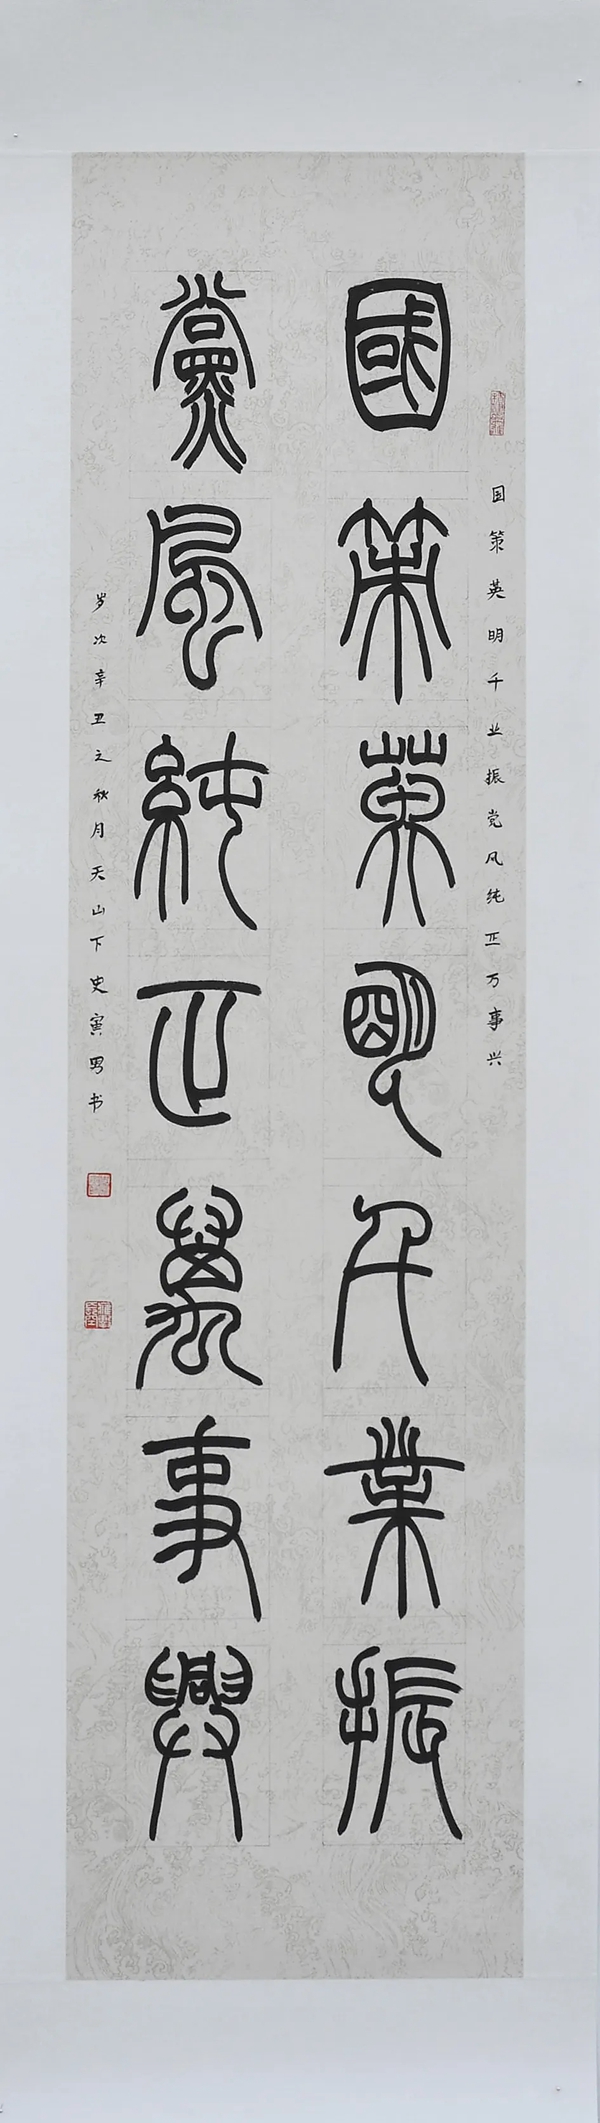 国策英明千业振党风纯正万事兴
國策英明千業振
黨風純正萬事興
岁次辛丑之秋月天山下史寅男书